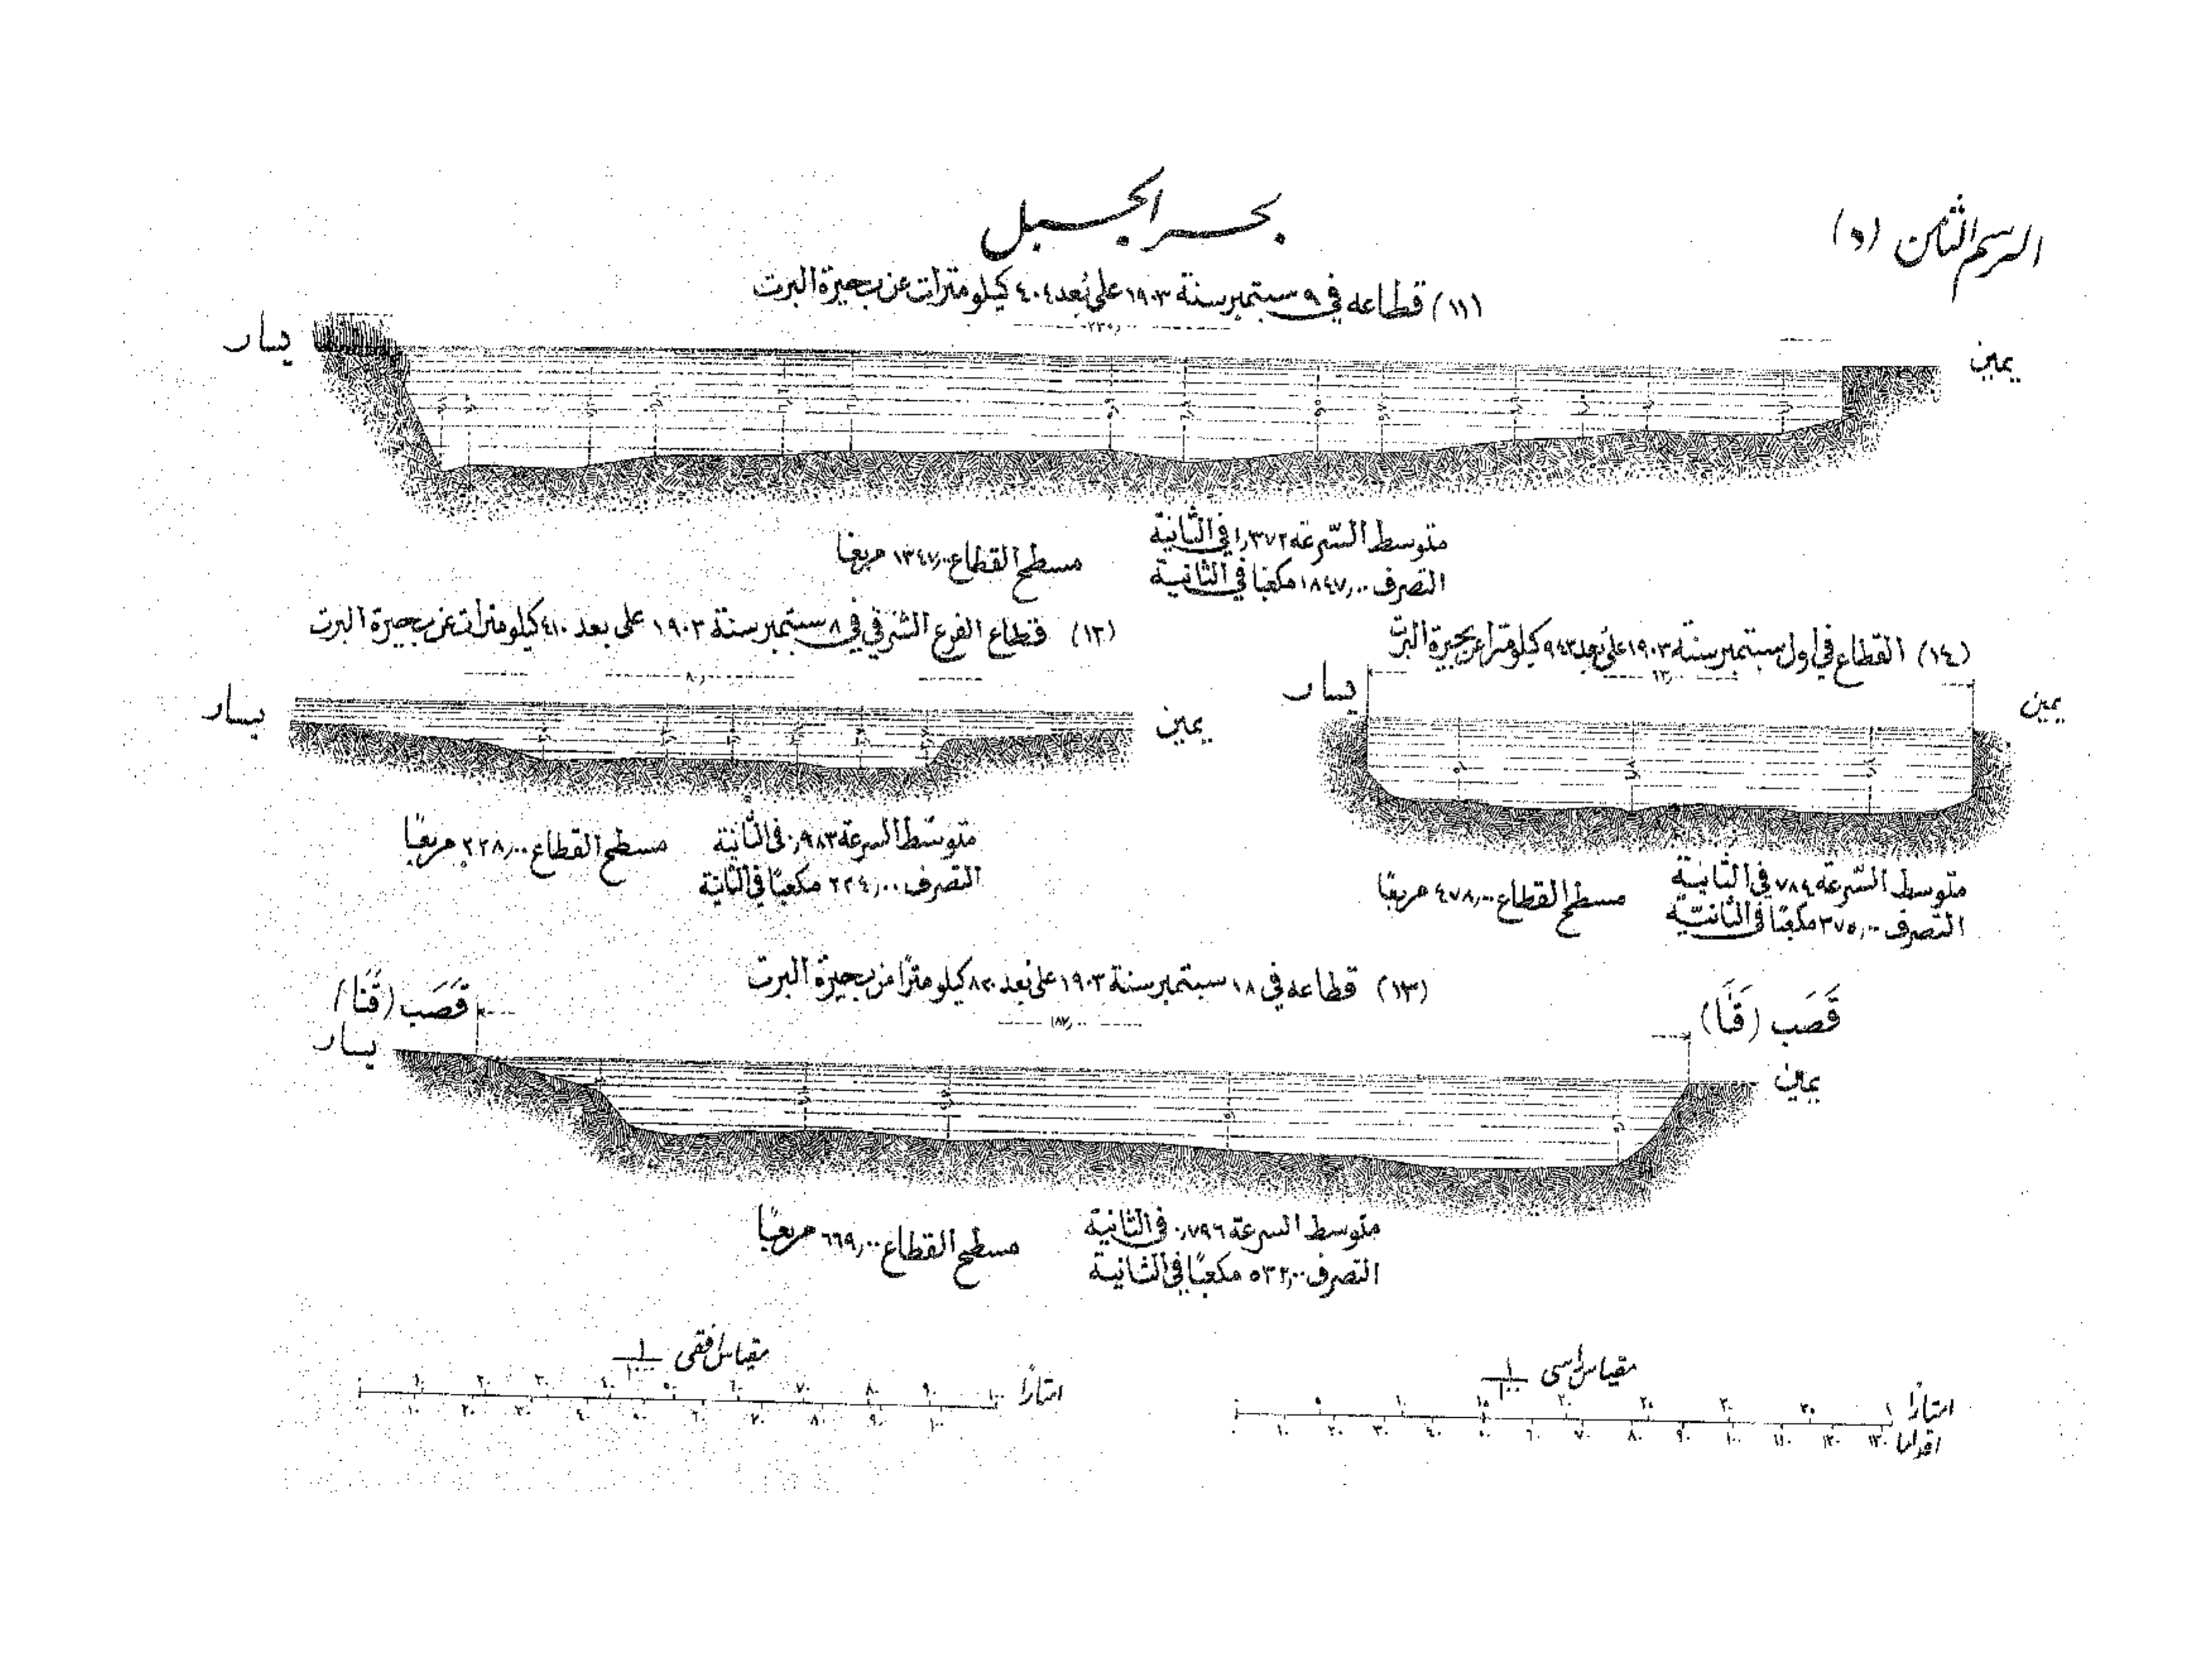 الرسم الثامن (٥)
بحر الجبل
(١١) قطاعه في ٩ سبتمبر سنة ١٩٠٣ على بُعد ٤٠٤ كيلو مترات عن بحيرة البرت
يسار
يمين
متوسط السرعة ١٫٣٧٢ في الثانية
التصرف ١٨٤٧٫٠٠ مكعبًا في الثانية
مسطح القطاع ١٣٤٧٫٠٠ مربعًا
(١٢) قطاع الفرع الشرقي في ٨ سبتمبر سنة ١٩٠٣ على بعد ٤١٠ كيلو مترات عن بحيرة البرت
يسار
يمين
متوسط السرعة ٠٫٩٨٣ في الثانية
التصرف ٢٢٤٫٠٠ مكعبًا في الثانية
مسطح القطاع ٢٢٨٫٠٠ مربعًا
(١٤) القطاع في اول سبتمبر سنة ١٩٠٣ على بُعد ٩٤٣ كيلو مترا عن بحيرة البرت
يسار
٩٣٫٠٠
يمين
متوسط السرعة ٠٫٧٨٤ في الثانية
التصرف ٣٧٥٫٠٠ مكعبًا في الثانية
مسطح القطاع ٤٧٨٫٠٠ مربعًا
(١٣) قطاعه في ١٨ سبتمبر سنة ١٩٠٣ على بُعد ٨٢٠ كيلو مترًا من بحيرة البرت
١٨٧٫٠٠
قَصَب (قَنَا)
يسار
قَصَب (قَنَّا)
يمين
متوسط السرعة ٠٫٧٩٦ في الثانية
التصرف ٥٣٢٫٠٠ مكعبًا في الثانية
مسطح القطاع ٦٦٩٫٠٠ مربعًا
مقياس افقى ١/١٠٠٠
١٠ ٢٠ ٣٠ ٤٠ ٥٠ ٦٠ ٧٠ ٨٠ ٩٠ ١٠٠ امتارًا
١٠ ٢٠ ٣٠ ٤٠ ٥٠ ٦٠ ٧٠ ٨٠ ٩٠ ١٠٠
مقياس رأسى ١/١٠٠
٥ ١٠ ١٥ ٢٠ ٢٥ ٣٠ ٣٥ امتارًا
١٠ ٢٠ ٣٠ ٤٠ ٥٠ ٦٠ ٧٠ ٨٠ ٩٠ ١٠٠ ١١٠ ١٢٠ ١٣٠ اقداما